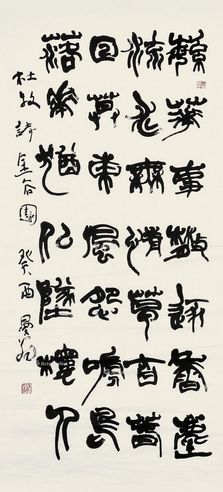 繁華事散逐香塵
流水無情草自春
日莫東風怨啼鳥
落華猶似墜樓人
杜牧詩金谷園 癸酉 曼翁